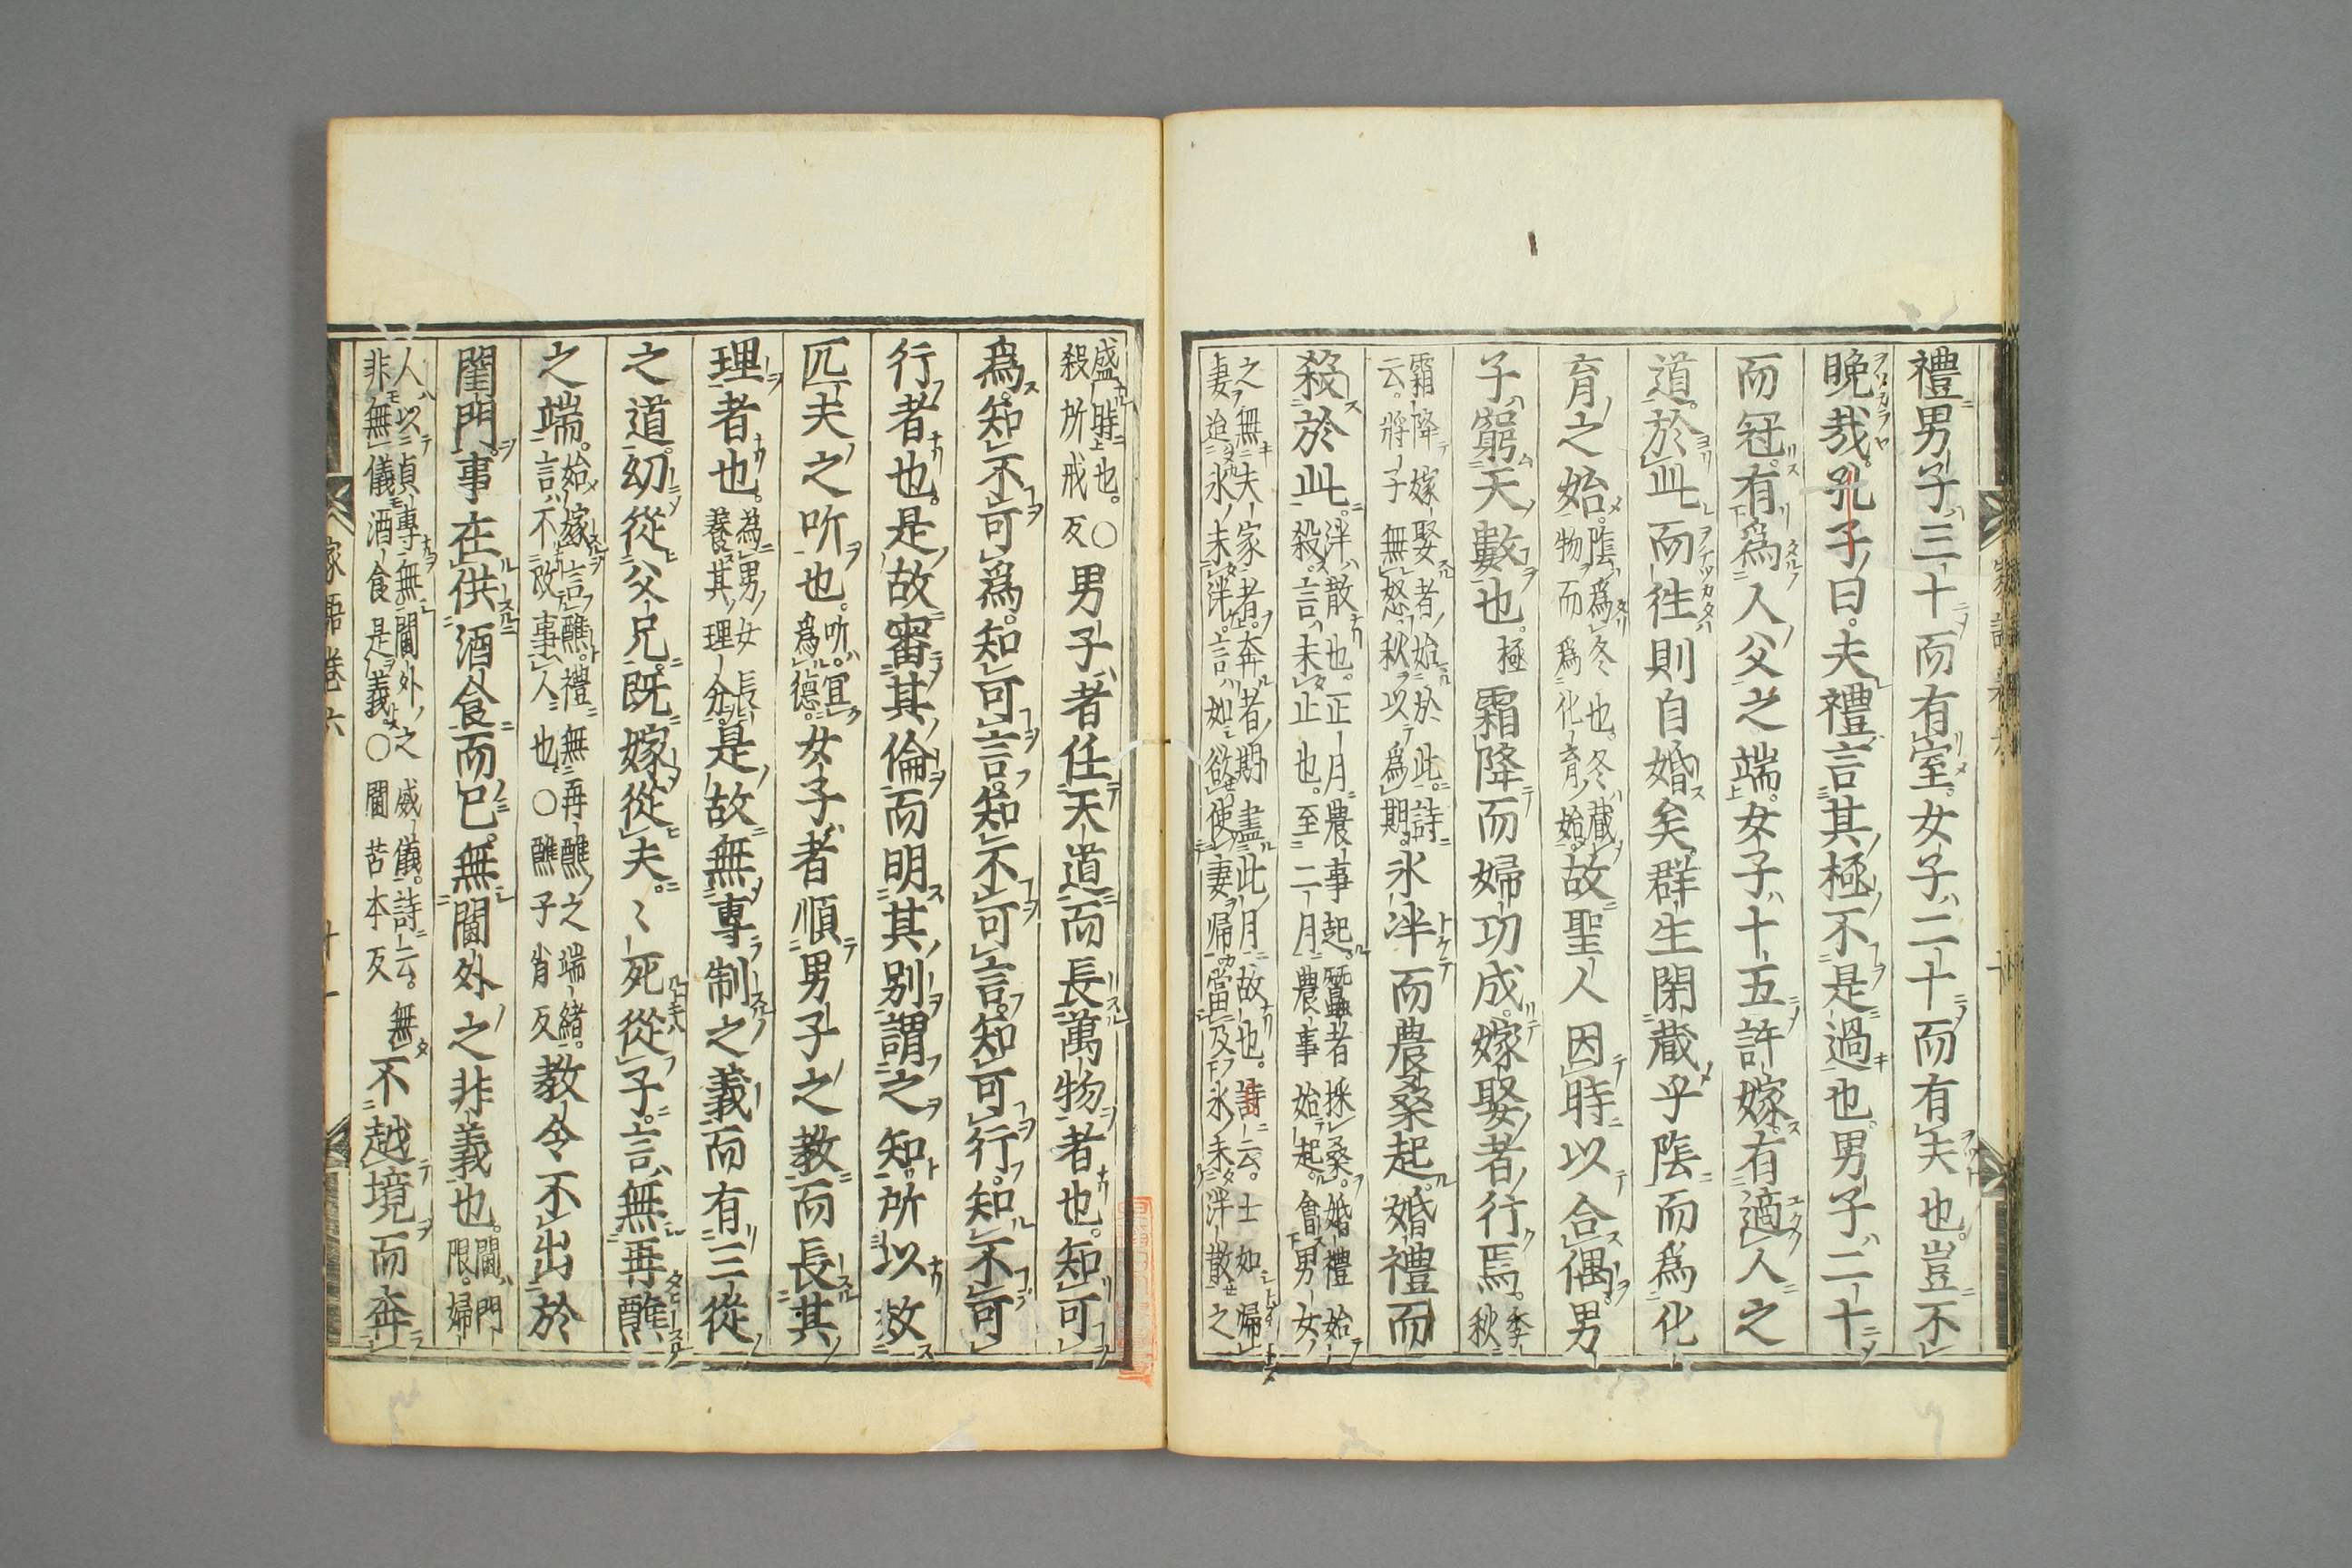 禮男子三十而有室。女子二十而有夫也。豈不
晩哉。孔子曰。夫禮言其極不是過也。男子二十
而冠。有爲人父之端。女子十五許嫁。有適人之
道。於此而徃則自婚矣。群生閉藏乎陰而爲化
育之始。陰爲冬也。冬藏物而爲化育始。故聖人因時以合偶。男
子窮天數也。極霜降而婦功成。嫁娶者行焉。季秋
霜降嫁娶者始於此。詩云。將子無怒。秋以爲期。氷泮而農桑起。婚禮而
殺於此。泮散也。正月農事起。蠶者採桑。婚禮始殺。言未止也。至二月農事始起。會男女
之無夫家者。奔者期盡此月故也。詩云。士如歸妻迨氷未泮。言如欲使妻歸當及氷未泮散之
盛時也。殺所戒反○男子者任天道而長萬物者也。知可
爲。知不可爲。知可言。知不可言。知可行。知不可
行者也。是故審其倫而明其別謂之知。所以效
匹夫之听也。听宜爲德。女子者順男子之教而長其
理者也。爲男女長養其理分。是故無專制之義而有三從
之道。幼從父兄。既嫁從夫。〻死從子。言無再醮
之端。始嫁言醮。禮無再醮之端緒。言不改事人也。○醮子肖反教令不出於
閨門。事在供酒食而已。無閫外之非義也。閫門限。婦
人以貞專無閫外之威儀。詩云。無非無儀酒食是義○閫苦本反不越境而奔
家語卷六
十一